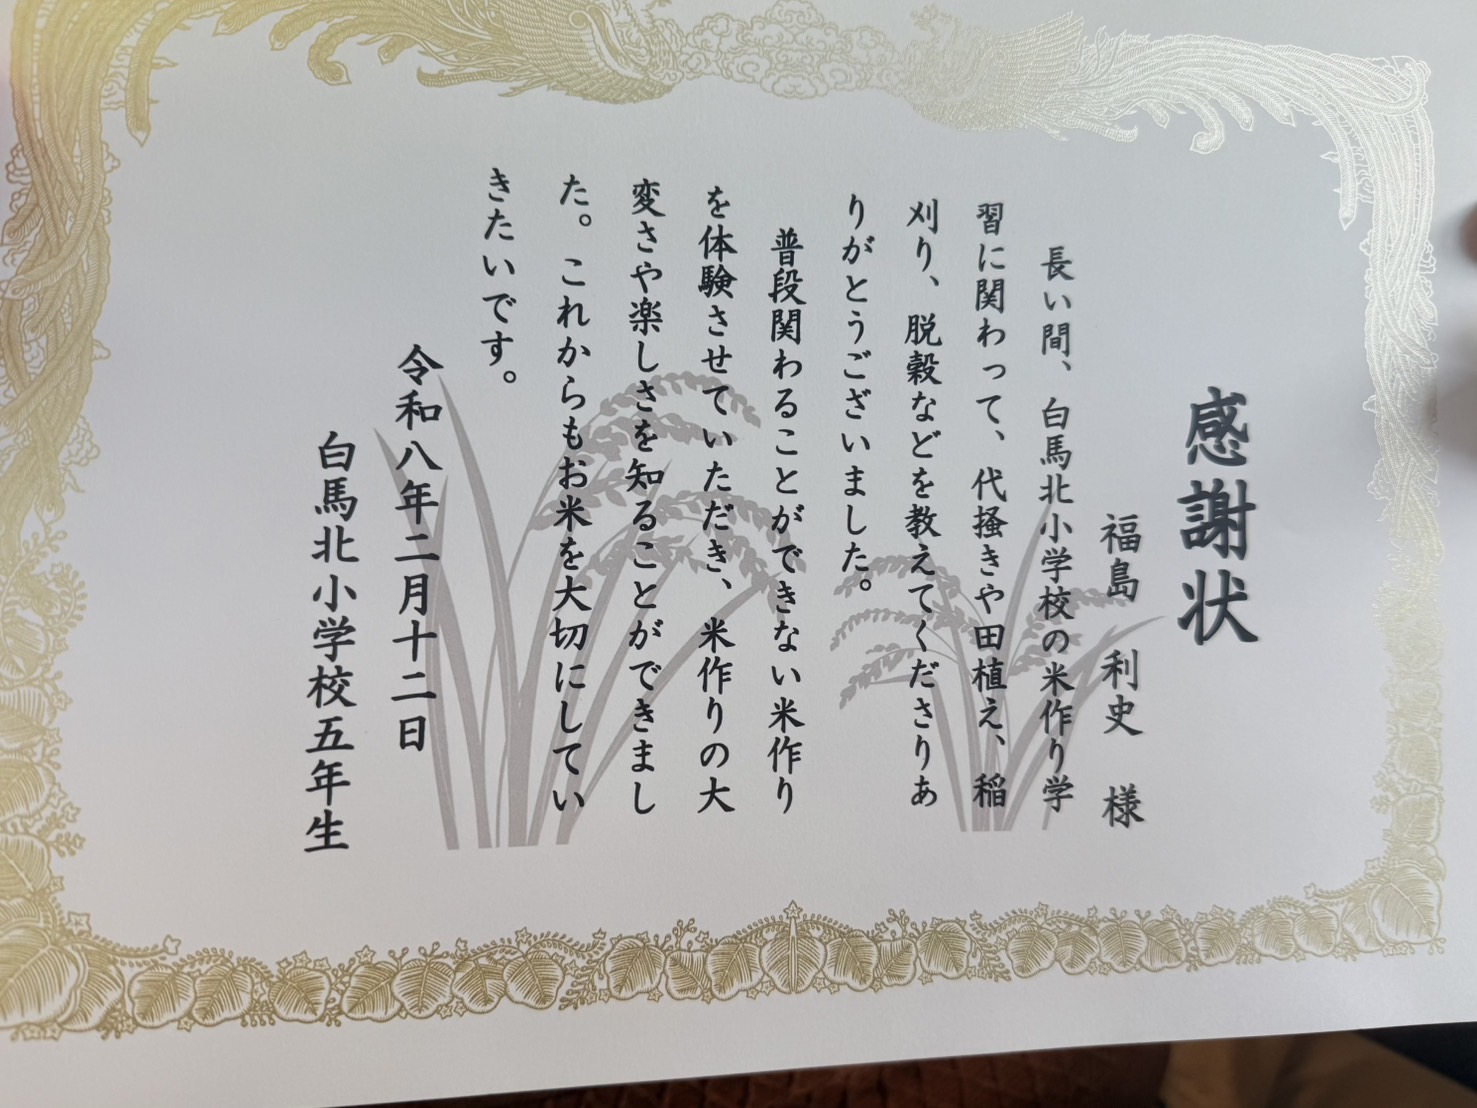 感謝状
福島 利史 様
長い間、白馬北小学校の米作り学
習に関わって、代掻きや田植え、稲
刈り、脱穀などを教えてくださりあ
りがとうございました。
普段関わることができない米作り
を体験させていただき、米作りの大
変さや楽しさを知ることができまし
た。これからもお米を大切にしてい
きたいです。
令和八年二月十二日
白馬北小学校五年生